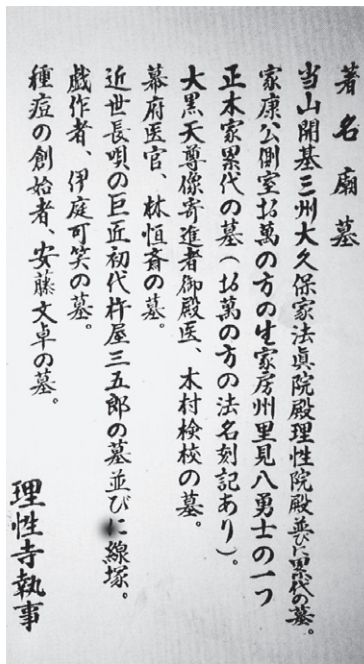 著名廟墓
当山開基三州大久保家法眞院殿理性院殿並びに累代の墓。
家康公側室お萬の方の生家房州里見八勇士の一つ
正木家累代の墓（お萬の方の法名刻記あり）。
大黒天尊像寄進者御殿医、木村検校の墓。
幕府医官、林恒斎の墓。
近世長唄の巨匠初代杵屋三五郎の墓並びに線塚。
戯作者、伊庭可笑の墓。
種痘の創始者、安藤文卓の墓。
理性寺執事